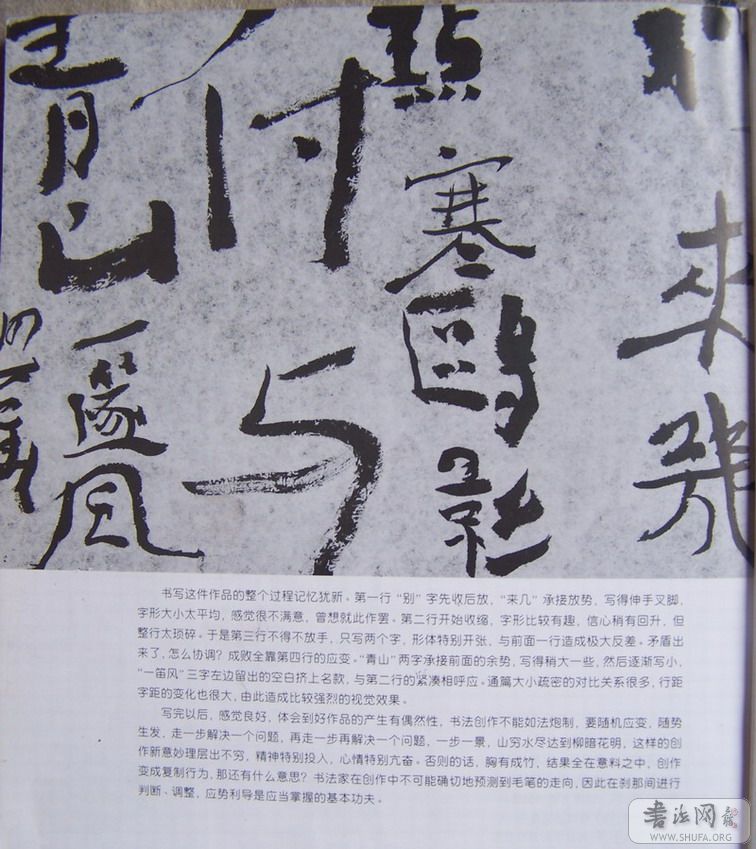 来
點寒鷗影
付与
青山一篴风
书写这件作品的整个过程记忆犹新。第一行“别”字先收后放，“来几”承接放势，写得伸手叉脚，
字形大小太平均，感觉很不满意，曾想就此作罢。第二行开始收缩，字形比较有趣，信心稍有回升，但
整行太琐碎。于是第三行不得不放手，只写两个字，形体特别开张，与前面一行造成极大反差。矛盾出
来了，怎么协调？成败全靠第四行的应变。“青山”两字承接前面的余势，写得稍大一些，然后逐渐写小，
“一笛风”三字左边留出的空白挤上名款，与第二行的紧凑相呼应。通篇大小疏密的对比关系很多，行距
字距的变化也很大，由此造成比较强烈的视觉效果。
写完以后，感觉良好，体会到好作品的产生有偶然性，书法创作不能如法炮制，要随机应变，随势
生发，走一步解决一个问题，再走一步再解决一个问题，一步一景，山穷水尽达到柳暗花明，这样的创
作新意妙理层出不穷，精神特别投入，心情特别亢奋。否则的话，胸有成竹，结果全在意料之中，创作
变成复制行为，那还有什么意思？书法家在创作中不可能确切地预测到毛笔的走向，因此在刹那间进行
判断、调整，应势利导是应当掌握的基本功夫。
书法网
WWW.SHUFA.ORG